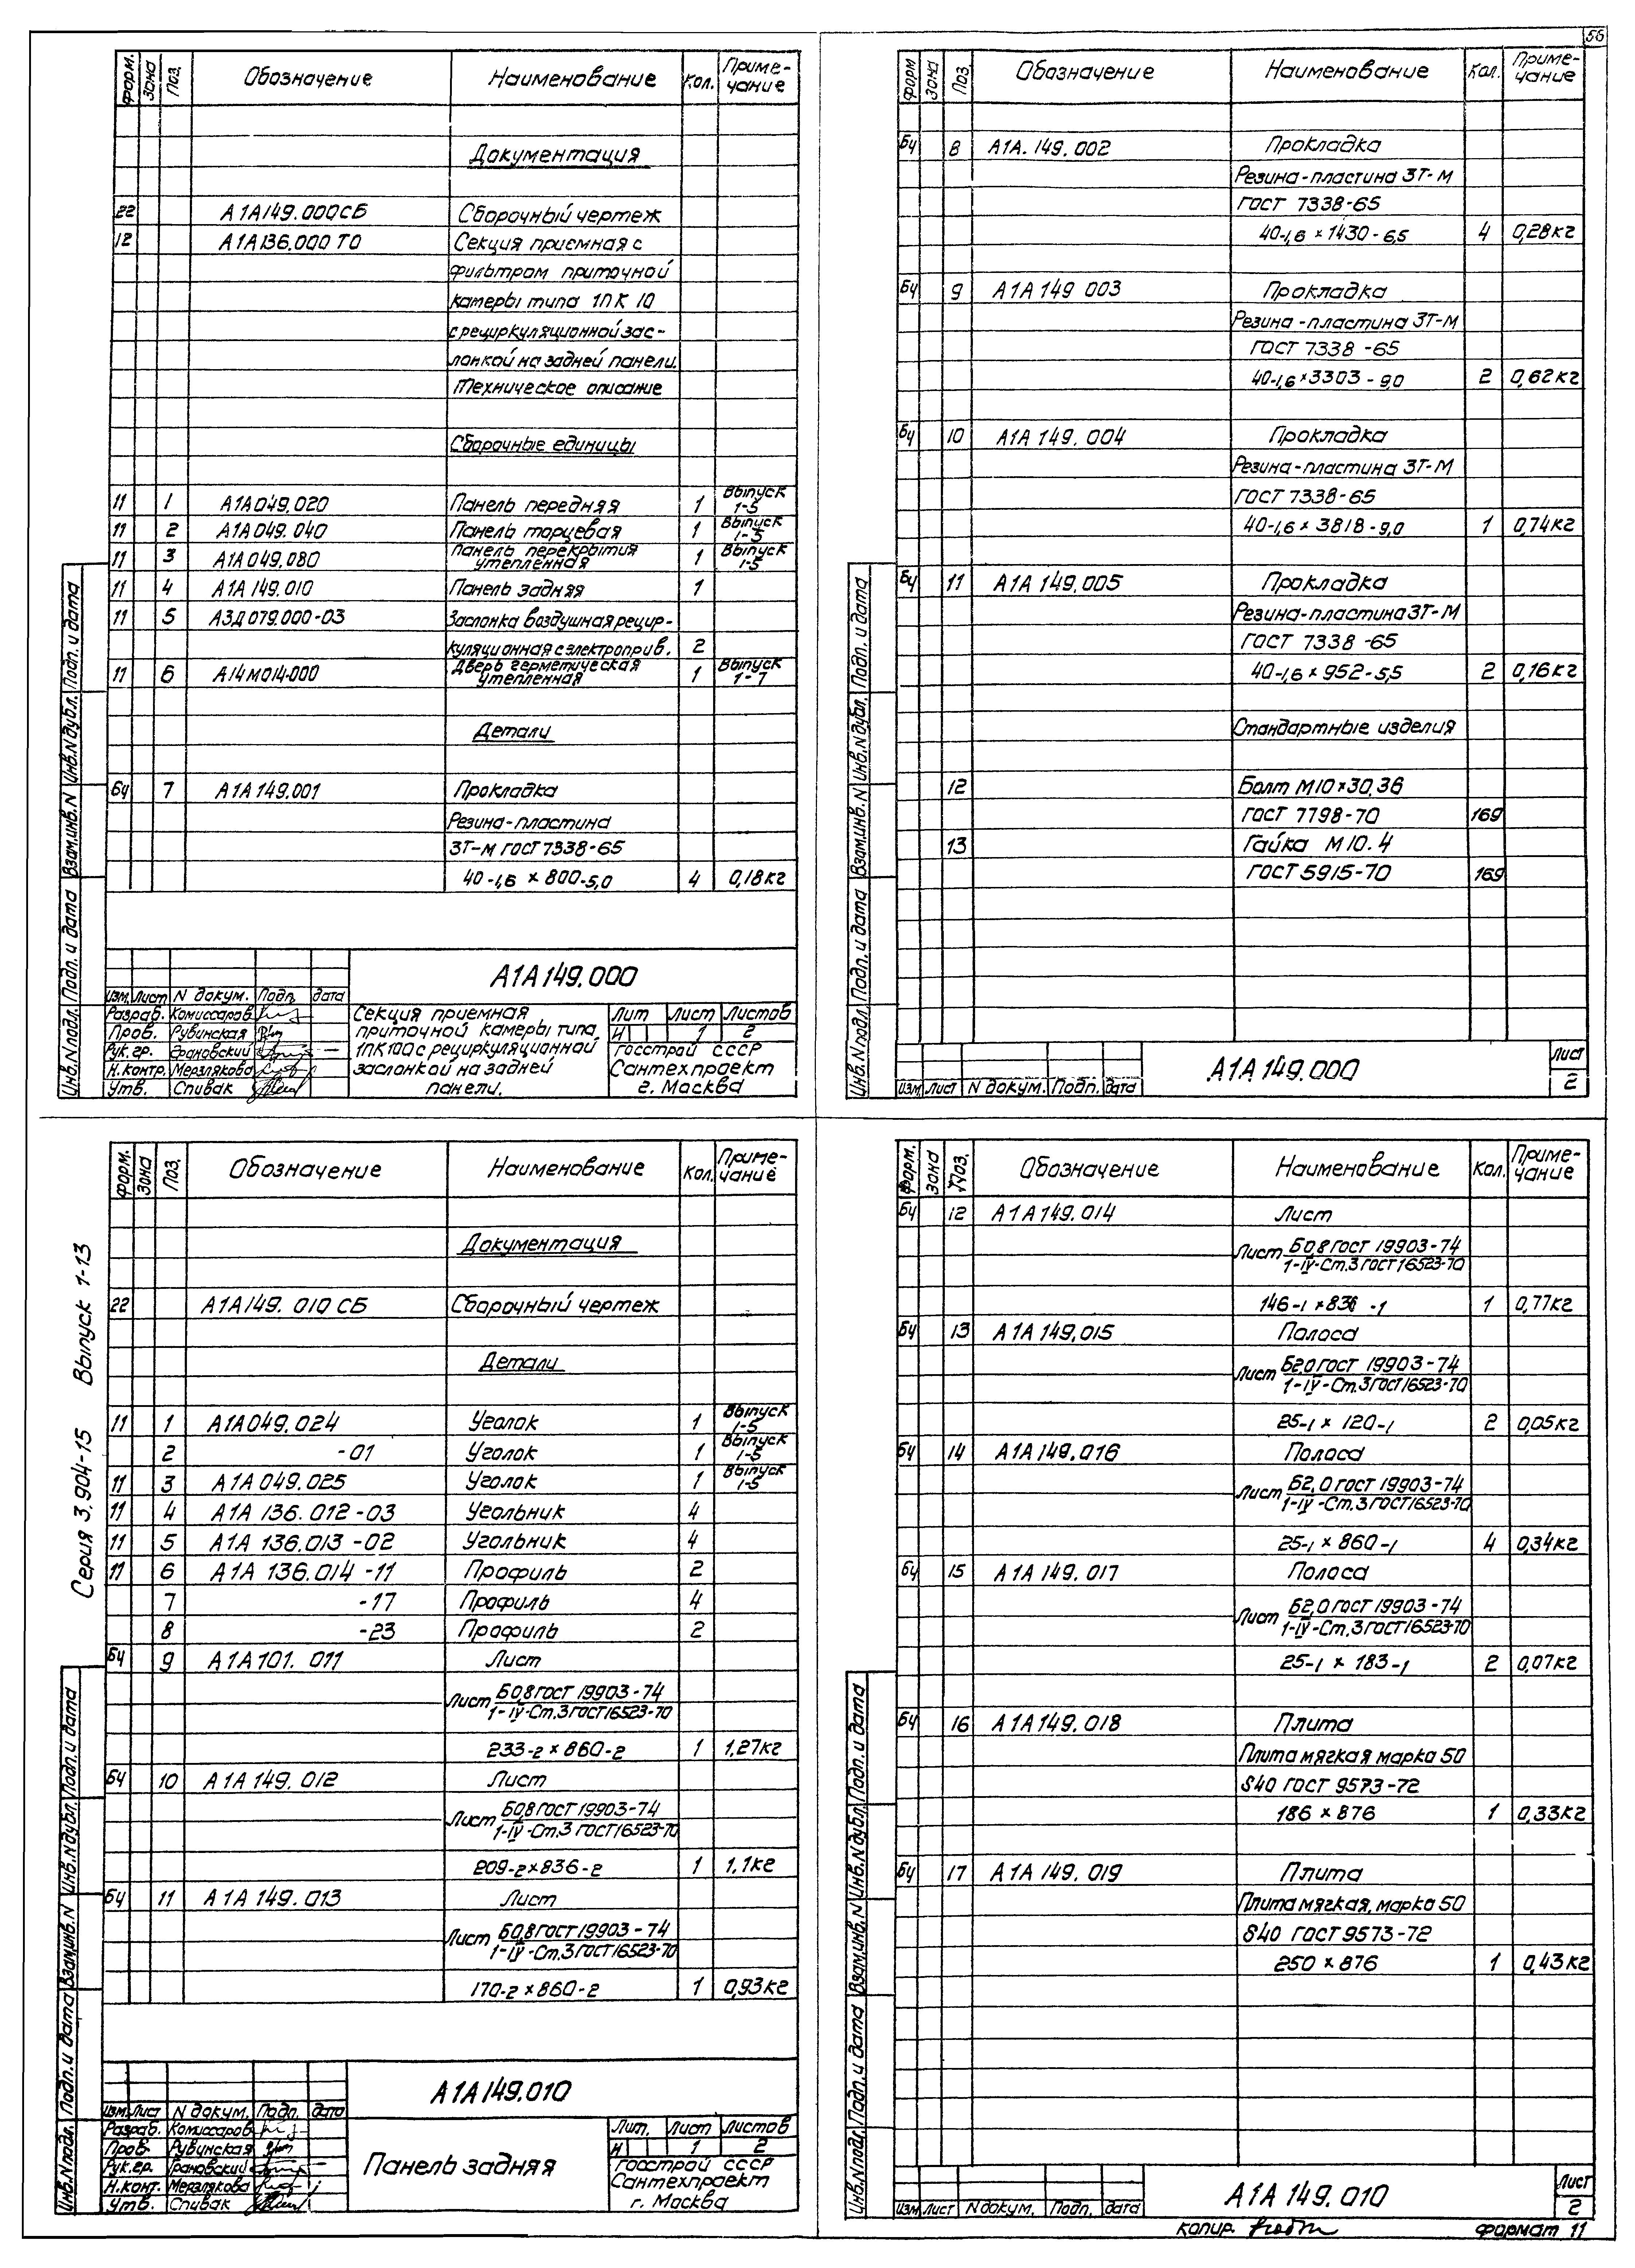 56
Форм. Зона Поз. Обозначение Наименование Кол. Примечание
Документация
22 А1А149.000СБ Сборочный чертеж
12 А1А136.000 ТО Секция приемная с
фильтром приточной
камеры типа 1ПК 10
с рециркуляционной зас-
лонкой на задней панели.
Техническое описание
Сборочные единицы
11 1 А1А049.020 Панель передняя 1 Выпуск 1-5
11 2 А1А049.040 Панель торцевая 1 Выпуск 1-5
11 3 А1А049.080 Панель перекрытия утепленная 1 Выпуск 1-5
11 4 А1А 149.010 Панель задняя 1
11 5 А3Д079.000-03 Заслонка воздушная рецир-
куляционная с электроприв. 2
11 6 А14М014.000 Дверь герметическая утепленная 1 Выпуск 1-7
Детали
БЧ 7 А1А149.001 Прокладка
Резина-пластина
3Т-М ГОСТ 7338-65
40-1,6 × 800-5,0 4 0,18кг
А1А149.000
Изм. Лист N докум. Подп. Дата
Разраб. Комиссаров
Пров. Рубинская
Рук. гр. Грановский
Н.контр. Мерзлякова
Утв. Спивак
Секция приемная
приточной камеры типа
1ПК10Д с рециркуляционной
заслонкой на задней
панели.
Лит Лист Листов
И 1 2
Госстрой СССР
Сантехпроект
г. Москва
Инв.N подл. Подп. и дата Взам.инв.N Инв.N дубл. Подп. и дата
Форм Зона Поз. Обозначение Наименование Кол. Примечание
БЧ 8 А1А.149.002 Прокладка
Резина-пластина 3Т-М
ГОСТ 7338-65
40-1,6 × 1430-6,5 4 0,28кг
БЧ 9 А1А149 003 Прокладка
Резина-пластина 3Т-М
ГОСТ 7338-65
40-1,6 × 3303-9,0 2 0,62кг
БЧ 10 А1А 149.004 Прокладка
Резина-пластина 3Т-М
ГОСТ 7338-65
40-1,6 × 3818-9,0 1 0,74кг
БЧ 11 А1А 149.005 Прокладка
Резина-пластина 3Т-М
ГОСТ 7338-65
40-1,6 × 952-5,5 2 0,16кг
Стандартные изделия
12 Болт М10×30.36
ГОСТ 7798-70 169
13 Гайка М10.4
ГОСТ 5915-70 169
Изм. Лист N докум. Подп. Дата
А1А149.000
Лист
2
Инв.N подл. Подп. и дата Взам.инв.N Инв.N дубл. Подп. и дата
Серия 3.904-15 Выпуск 1-13
Форм. Зона Поз. Обозначение Наименование Кол. Примечание
Документация
22 А1А149.010 СБ Сборочный чертеж
Детали
11 1 А1А049.024 Уголок 1 Выпуск 1-5
2 -01 Уголок 1 Выпуск 1-5
11 3 А1А049.025 Уголок 1 Выпуск 1-5
11 4 А1А 136.012-03 Угольник 4
11 5 А1А 136.013-02 Угольник 4
11 6 А1А 136.014-11 Профиль 2
7 -17 Профиль 4
8 -23 Профиль 2
БЧ 9 А1А101.011 Лист
Лист Б0,8 ГОСТ 19903-74
1-IV-Ст.3 ГОСТ16523-70
233-2 × 860-2 1 1,27кг
БЧ 10 А1А149.012 Лист
Лист Б0,8 ГОСТ 19903-74
1-IV-Ст.3 ГОСТ16523-70
209-2 × 836-2 1 1,1кг
БЧ 11 А1А 149.013 Лист
Лист Б0,8 ГОСТ 19903-74
1-IV-Ст.3 ГОСТ16523-70
170-2 × 860-2 1 0,93кг
А1А149.010
Изм. Лист N докум. Подп. Дата
Разраб. Комиссаров
Пров. Рубинская
Рук.гр. Грановский
Н.конт. Мерзлякова
Утв. Спивак
Панель задняя
Лит. Лист Листов
И 1 2
Госстрой СССР
Сантехпроект
г. Москва
Инв.N подл. Подп. и дата Взам.инв.N Инв.N дубл. Подп. и дата
Форм. Зона Поз. Обозначение Наименование Кол. Примечание
БЧ 12 А1А149.014 Лист
Лист Б0,8 ГОСТ 19903-74
1-IV-Ст.3 ГОСТ16523-70
146-1 × 836-1 1 0,77кг
БЧ 13 А1А149.015 Полоса
Лист Б2,0 ГОСТ 19903-74
1-IV-Ст.3 ГОСТ16523-70
25-1 × 120-1 2 0,05кг
БЧ 14 А1А149.016 Полоса
Лист Б2,0 ГОСТ 19903-74
1-IV-Ст.3 ГОСТ16523-70
25-1 × 860-1 4 0,34кг
БЧ 15 А1А 149.017 Полоса
Лист Б2,0 ГОСТ 19903-74
1-IV-Ст.3 ГОСТ16523-70
25-1 × 183-1 2 0,07кг
БЧ 16 А1А149.018 Плита
Плита мягкая марка 50
S40 ГОСТ 9573-72
186 × 876 1 0,33кг
БЧ 17 А1А 149.019 Плита
Плита мягкая, марка 50
S40 ГОСТ 9573-72
250 × 876 1 0,43кг
Изм. Лист N докум. Подп. Дата
А1А 149.010
Лист
2
Инв.N подл. Подп. и дата Взам.инв.N Инв.N дубл. Подп. и дата
Копир. Формат 11